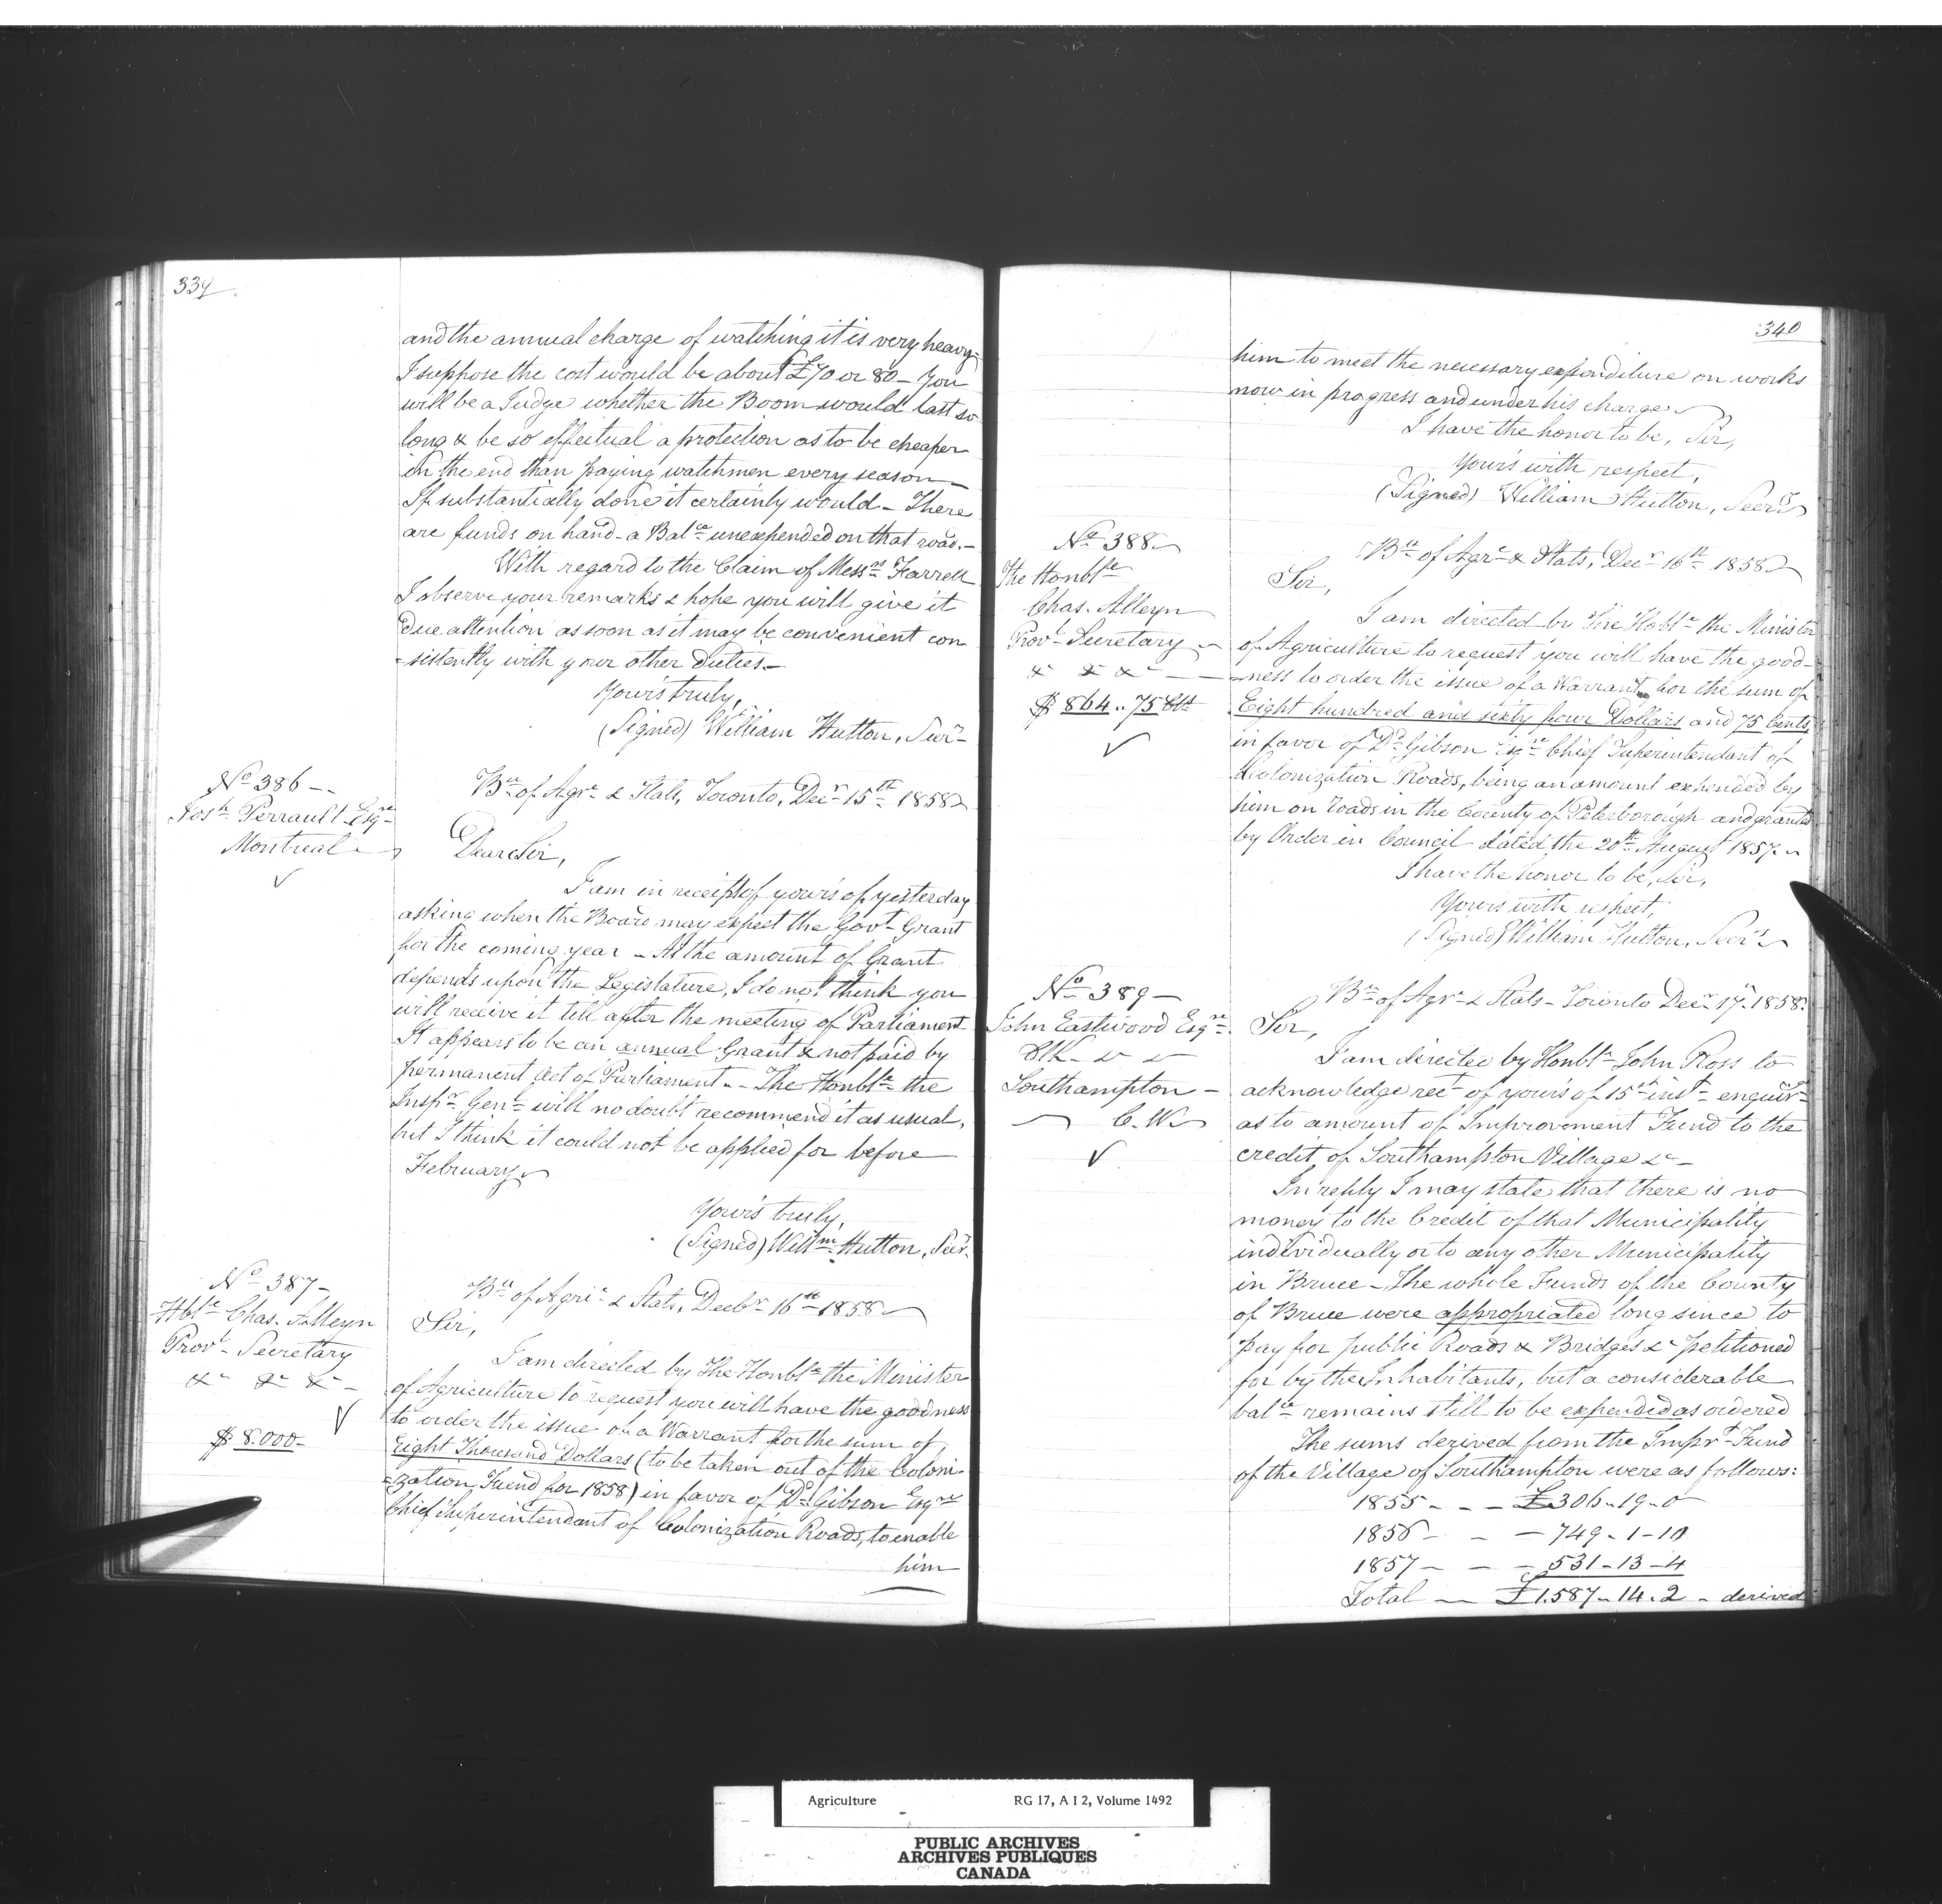 339
and the annual charge of watching it is very heavy-
I suppose the cost would be about £70 or 80 - You
will be a Judge whether the Boom would last so
long & be so effectual a protection as to be cheaper
in the end than paying watchmen every season -
If substantially done it certainly would - There
are funds on hand - a Balce unexpended on that road. -
With regard to the Claim of Messrs Farrell
I observe your remarks & hope you will give it
due attention as soon as it may be convenient con
-sistently with your other duties. -
Your's truly,
(Signed) William Hutton, Secr-
No 386 - -
Josh Perrault Esqre
Montreal
✓
Bu of Agre & Stats, Toronto, Decr 15th 1858
Dear Sir,
I am in receipt of your's of yesterday
asking when the Board may expect the Govt Grant
for the coming year - As the amount of Grant
depends upon the Legislature, I do not think you
will receive it till after the meeting of Parliament
It appears to be an annual Grant & not paid by
permanent Act of Parliament - - The Honble the
Inspr Genl will no doubt recommend it as usual,
but I think it could not be applied for before
February
Your's truly,
(Signed) Willm Hutton, Secr.
No 387 -
Hble Chas. Alleyn
Provl Secretary
&c &c &c -
✓
$ 8.000 -
Bu of Agric & Stats, Decbr 16th 1858
Sir,
I am directed by The Honble the Minister
of Agriculture to request you will have the goodness
to order the issue of a Warrant for the sum of
Eight Thousand Dollars (to be taken out of the Coloni-
-zation Fund for 1858) in favor of Dd Gibson Esqre
Chief Superintendant of Colonization Roads, to enable
him
340
him to meet the necessary expenditure on works
now in progress and under his charge
I have the honor to be, Sir,
Your's with respect,
(Signed) William Hutton, Secry
No 388
The Honble
Chas. Alleyn
Provl Secretary
& & &c - -
$ 864 .. 75 Cts
✓
Bu of Agre & Stats, Decr 16th 1858
Sir,
I am directed by The Hoble the Minister
of Agriculture to request you will have the good-
-ness to order the issue of a Warrant for the sum of
Eight hundred and sixty four Dollars and 75 Cents,
in favor of Dd Gibson Esqre Chief Superintendant of
Colonization Roads, being an amount expended by
him on roads in the County of Peterborough and granted
by Order in Council dated the 20th August 1857 -
I have the honor to be, Sir,
Your's with respect,
(Signed) William Hutton, Secry
No 389 -
John Eastwood Esqre
Southampton -
C. W.
✓
Bu of Agre & Stats - Toronto Decr 17. 1858.
Sir,
I am directed by Honble John Ross to
acknowledge rect of your's of 15th inst enquirg
as to amount of Improvement Fund to the
credit of Southampton Village &c -
In reply I may state that there is no
money to the Credit of that Municipality
individually or to any other Municipality
in Bruce - The whole Funds of the County
of Bruce were appropriated long since to
pay for public Roads & Bridges &c petitioned
for by the Inhabitants, but a considerable
balce remains still to be expended as ordered
The sums derived from the Imprt Fund
of the Village of Southampton were as follows:
1855 - - - £306 - 19 - 0
1856 - - - 749 - 1 - 10
1857 - - - 531 - 13 - 4
Total - £1.587 - 14 . 2 - derived
Agriculture RG 17, A I 2, Volume 1492
PUBLIC ARCHIVES
ARCHIVES PUBLIQUES
CANADA